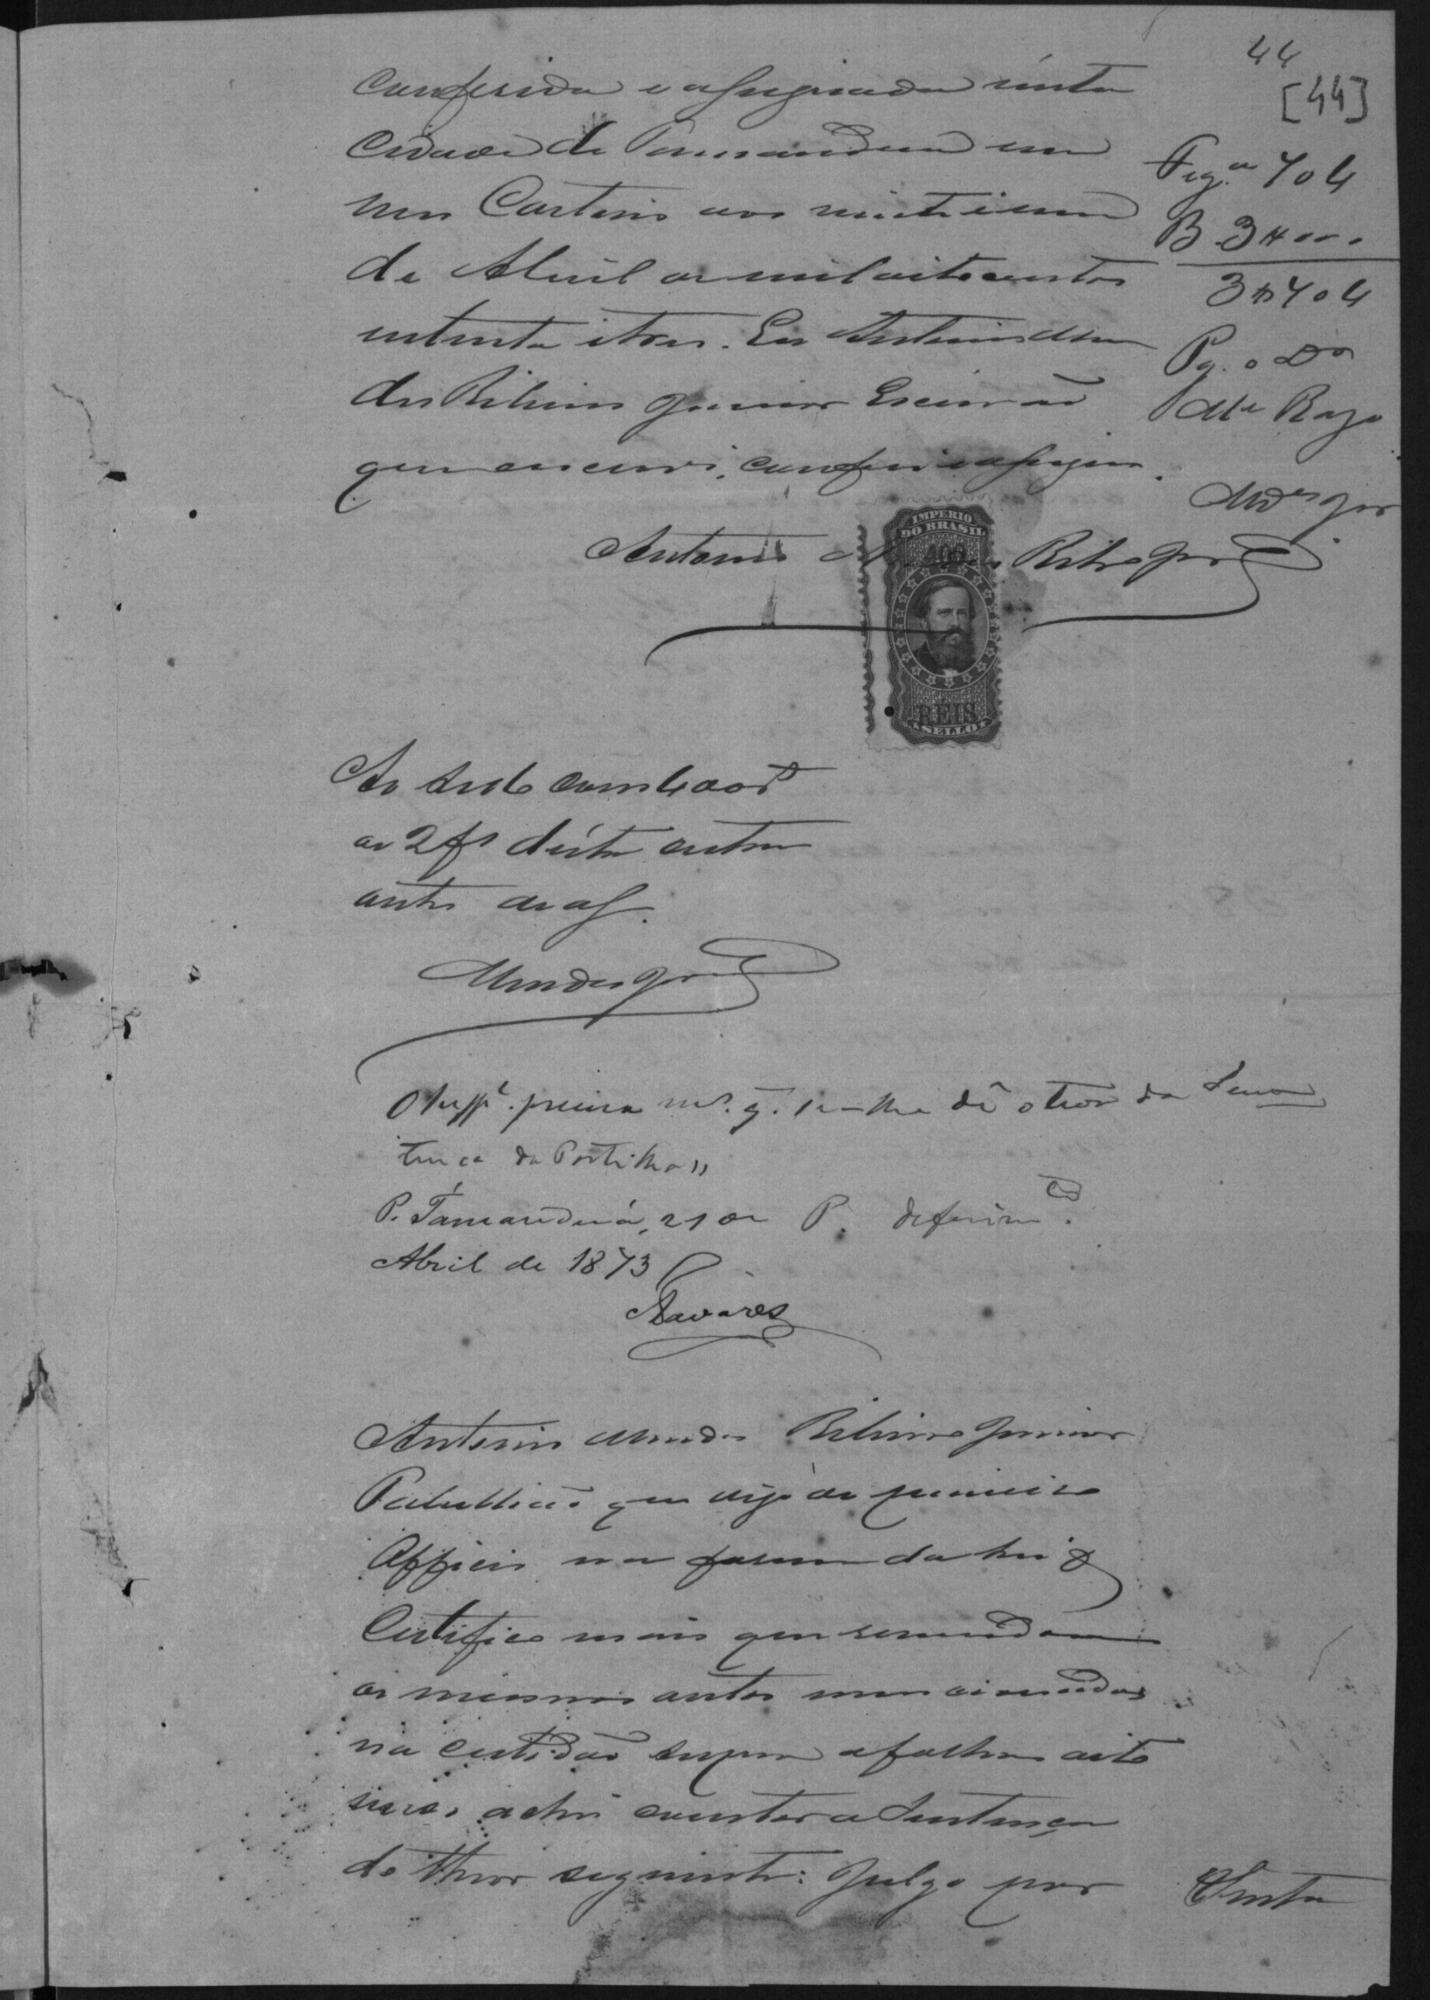 44
[44]
conferida e assignada nesta
Cidade de Tamanduá em
meu Cartorio aos vinte e um
de Abril de mil oito centos
setenta e tres. Eu Antonio Men
des Ribeiro Junior Escrivão
que escrevi, conferi e assigno.
Antonio Ribro Jor
Fig.a 704
B. 3#000
3#704
Pg. o Do
Mendes Jor
IMPERIO
DO BRASIL
400
REIS
SELLO
Ao sello com
de 2 fs desta outra
antes de ass.
Mendes Jor
O Suppe. precisa q. lhe dê o theor da Senn
tença da Partilha
P. Tamanduá, 21 de P. deferimto.
Abril de 1873
Tavares
Antonio Mendes Ribeiro Junior
Tabellião do primeiro
Officio na forma da Lei &
Certifico mais que revendo
os mesmos autos mencionados
na certidão supra a folhas oito
achei constar a Sentença
do theor seguinte: Julgo por
Snta